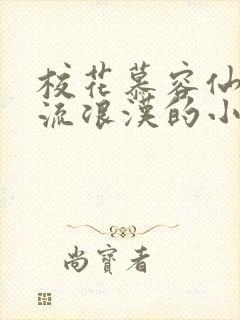 校花慕容仙
流浪漢的小
尚寳者